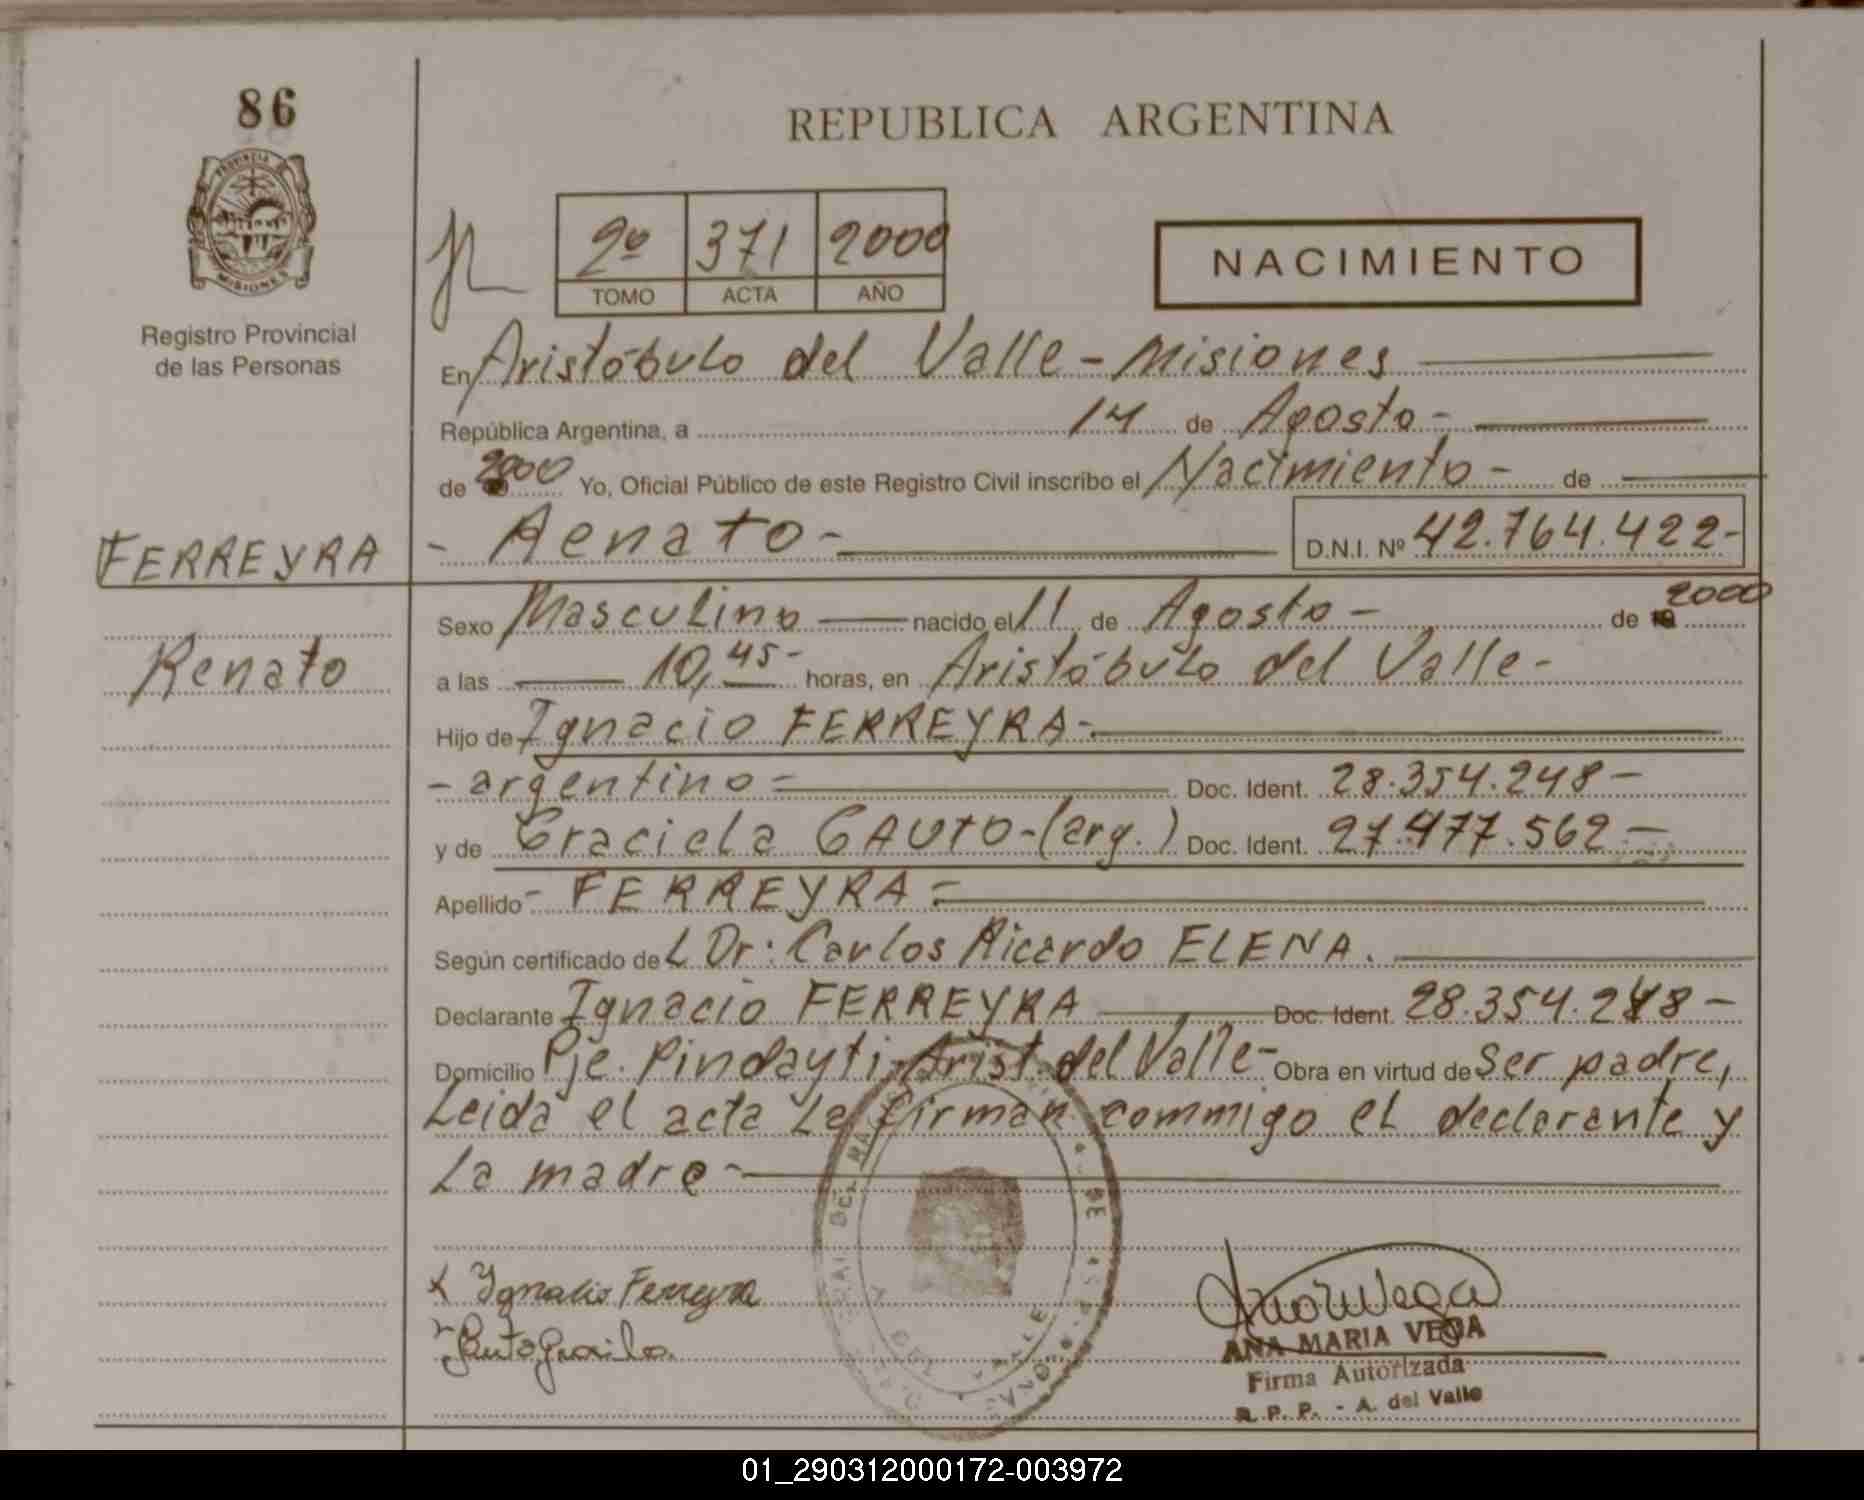 86
REPUBLICA ARGENTINA
PROVINCIA
MISIONES
Registro Provincial
de las Personas
2º 371 2000
TOMO ACTA AÑO
NACIMIENTO
En Aristóbulo del Valle - Misiones
República Argentina, a 14 de Agosto -
de 2000 Yo, Oficial Público de este Registro Civil inscribo el Nacimiento - de
FERREYRA
- Renato - D.N.I. Nº 42.764.422-
Sexo Masculino nacido el 11 de Agosto - de 2000
Renato
a las 10,45- horas, en Aristóbulo del Valle -
Hijo de Ignacio FERREYRA-
- argentino - Doc. Ident. 28.354.248-
y de Graciela GAUTO-(arg.) Doc. Ident. 27.477.562-
Apellido - FERREYRA -
Según certificado de L Dr: Carlos Ricardo ELENA.
Declarante Ignacio FERREYRA Doc. Ident. 28.354.248-
Domicilio Pje. Pindayti-Arist. del Valle- Obra en virtud de ser padre,
Leida el acta la firman commigo el declarante y
La madre -
x Ignacio Ferreyra
Gauto Graciela
ANA MARIA VEGA
Firma Autorizada
R. P. P. - A. del Valle
01_290312000172-003972